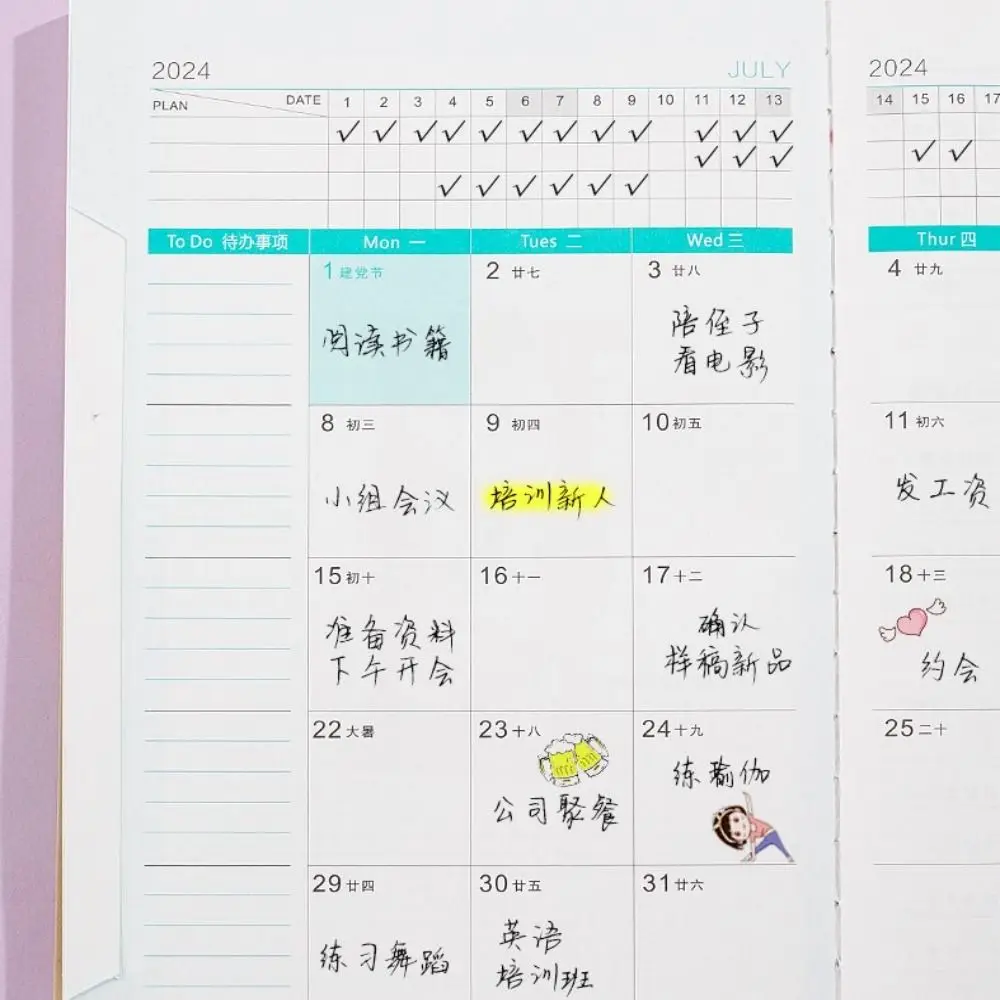 2024 JULY
PLAN DATE 1 2 3 4 5 6 7 8 9 10 11 12 13
To Do 待办事项 Mon 一 Tues 二 Wed 三
1 建党节 2 廿七 3 廿八
阅读书籍
陪侄子
看电影
8 初三 9 初四 10 初五
小组会议 培训新人
15 初十 16 十一 17 十二
准备资料
下午开会
确认
样稿新品
22 大暑 23 十八 24 十九
公司聚餐
练瑜伽
29 廿四 30 廿五 31 廿六
练习舞蹈
英语
培训班
2024
14 15 16 17
Thur 四
4 廿九
11 初六
发工资
18 十三
约会
25 二十